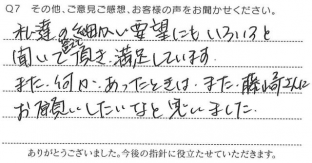 Q7 その他、ご意見ご感想、お客様の声をお聞かせください。
私達の細かい要望にもいろいろと
聞いて頂き、満足しています。
また、何か、あったときは、また、藤崎さんに
お願いしたいなと思いました。
ありがとうございました。今後の指針に役立たせていただきます。